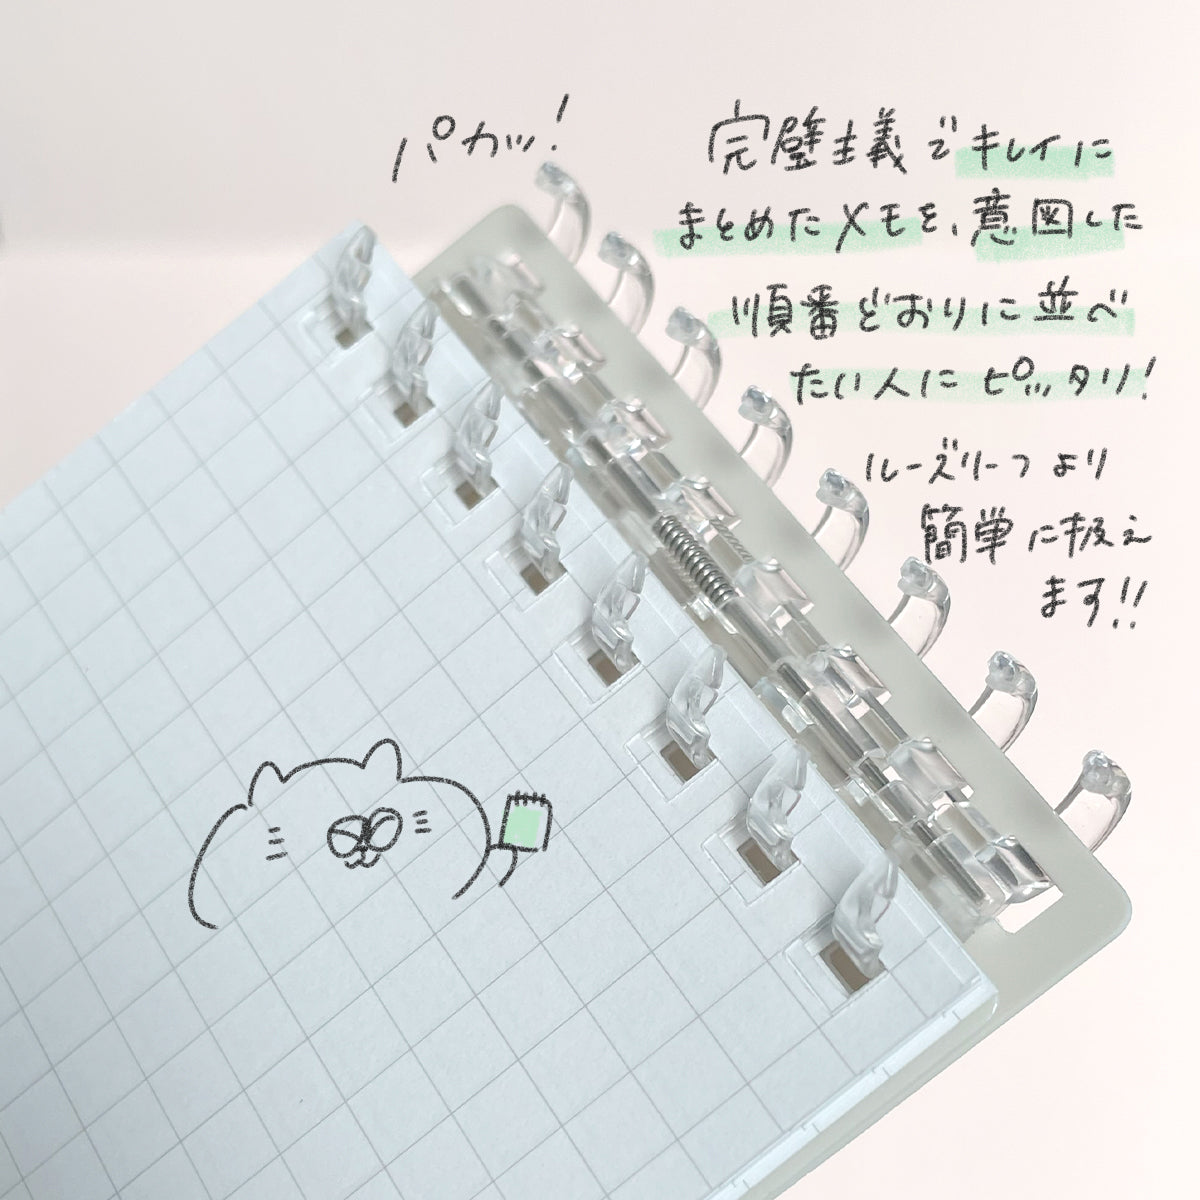 パカッ!
完璧主義でキレイに
まとめたメモを、意図した
順番どおりに並べ
たい人にピッタリ!
ルーズリーフより
簡単に扱え
ます!!